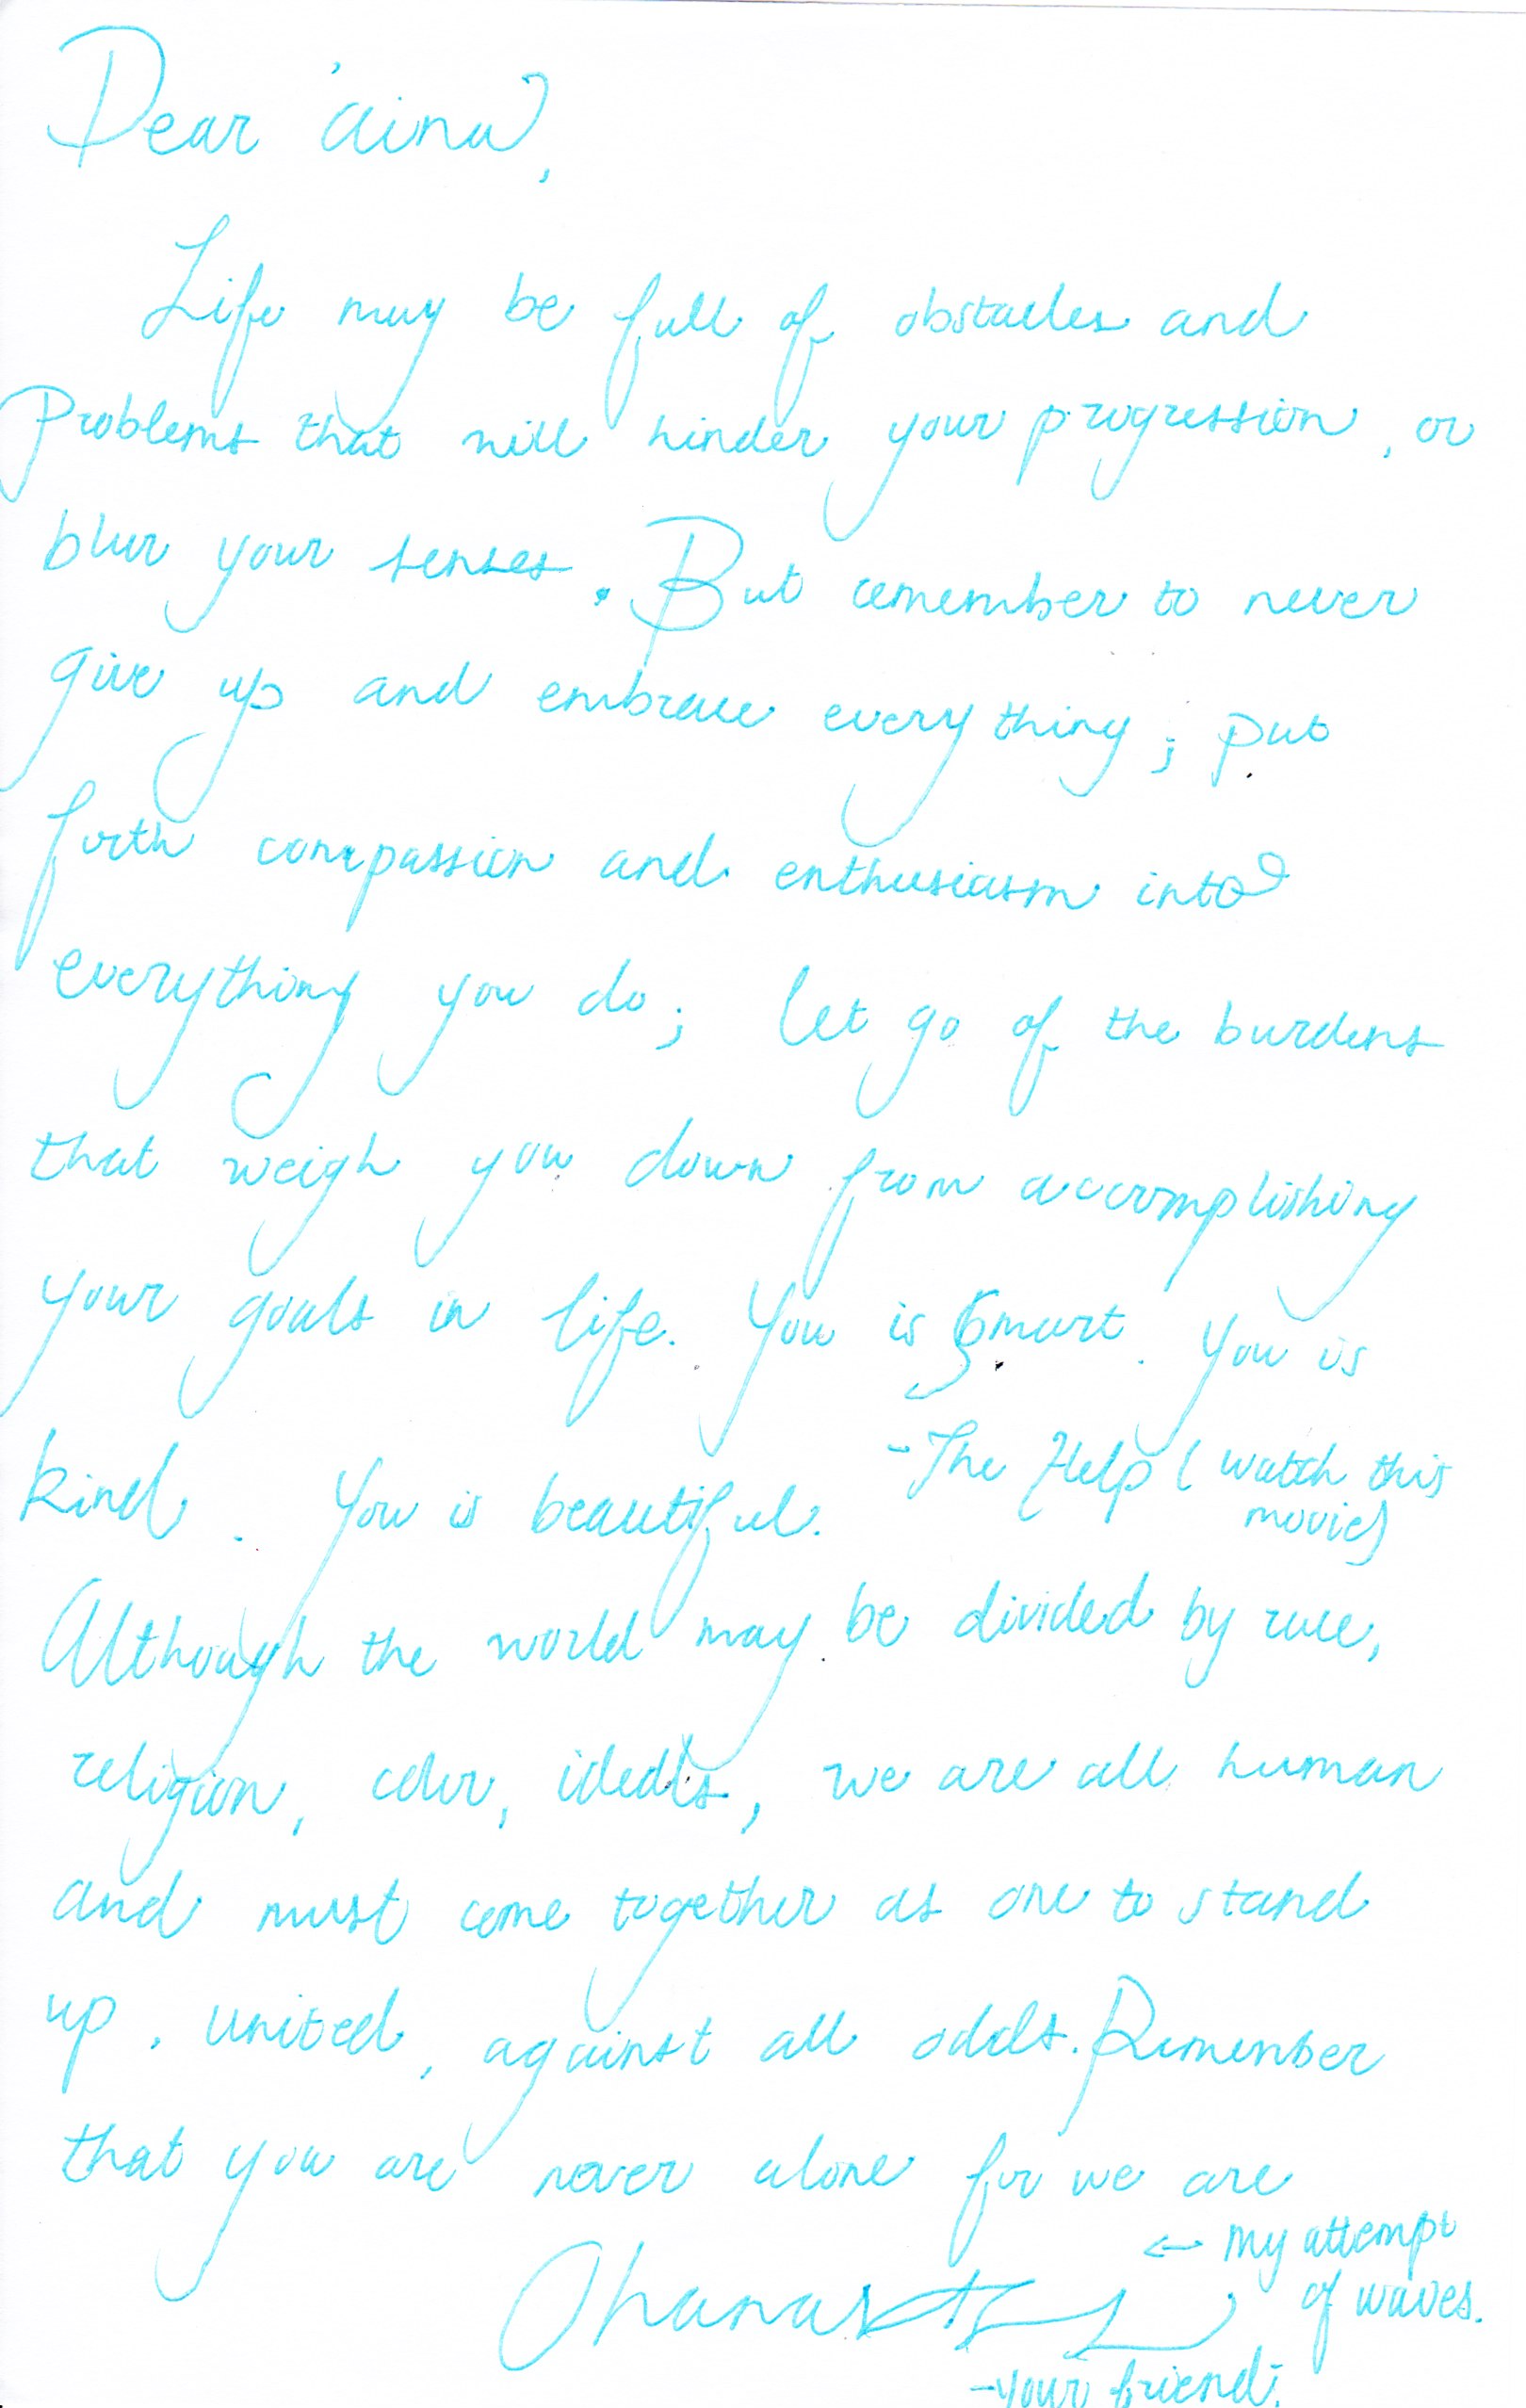 Dear 'aina,
Life may be full of obstacles and
Problems that will hinder your progression, or
blur your senses. But remember to never
give up and embrace everything; put
forth compassion and enthusiasm into
everything you do; let go of the burdens
that weigh you down from accomplishing
your goals in life. You is Smart. You is
kind. You is beautiful. -The Help (watch this
movie)
Although the world may be divided by race,
religion, color, ideals, we are all human
and must come together as one to stand
up, united, against all odds. Remember
that you are never alone for we are
← my attempt
of waves.
Ohana
-your friend: